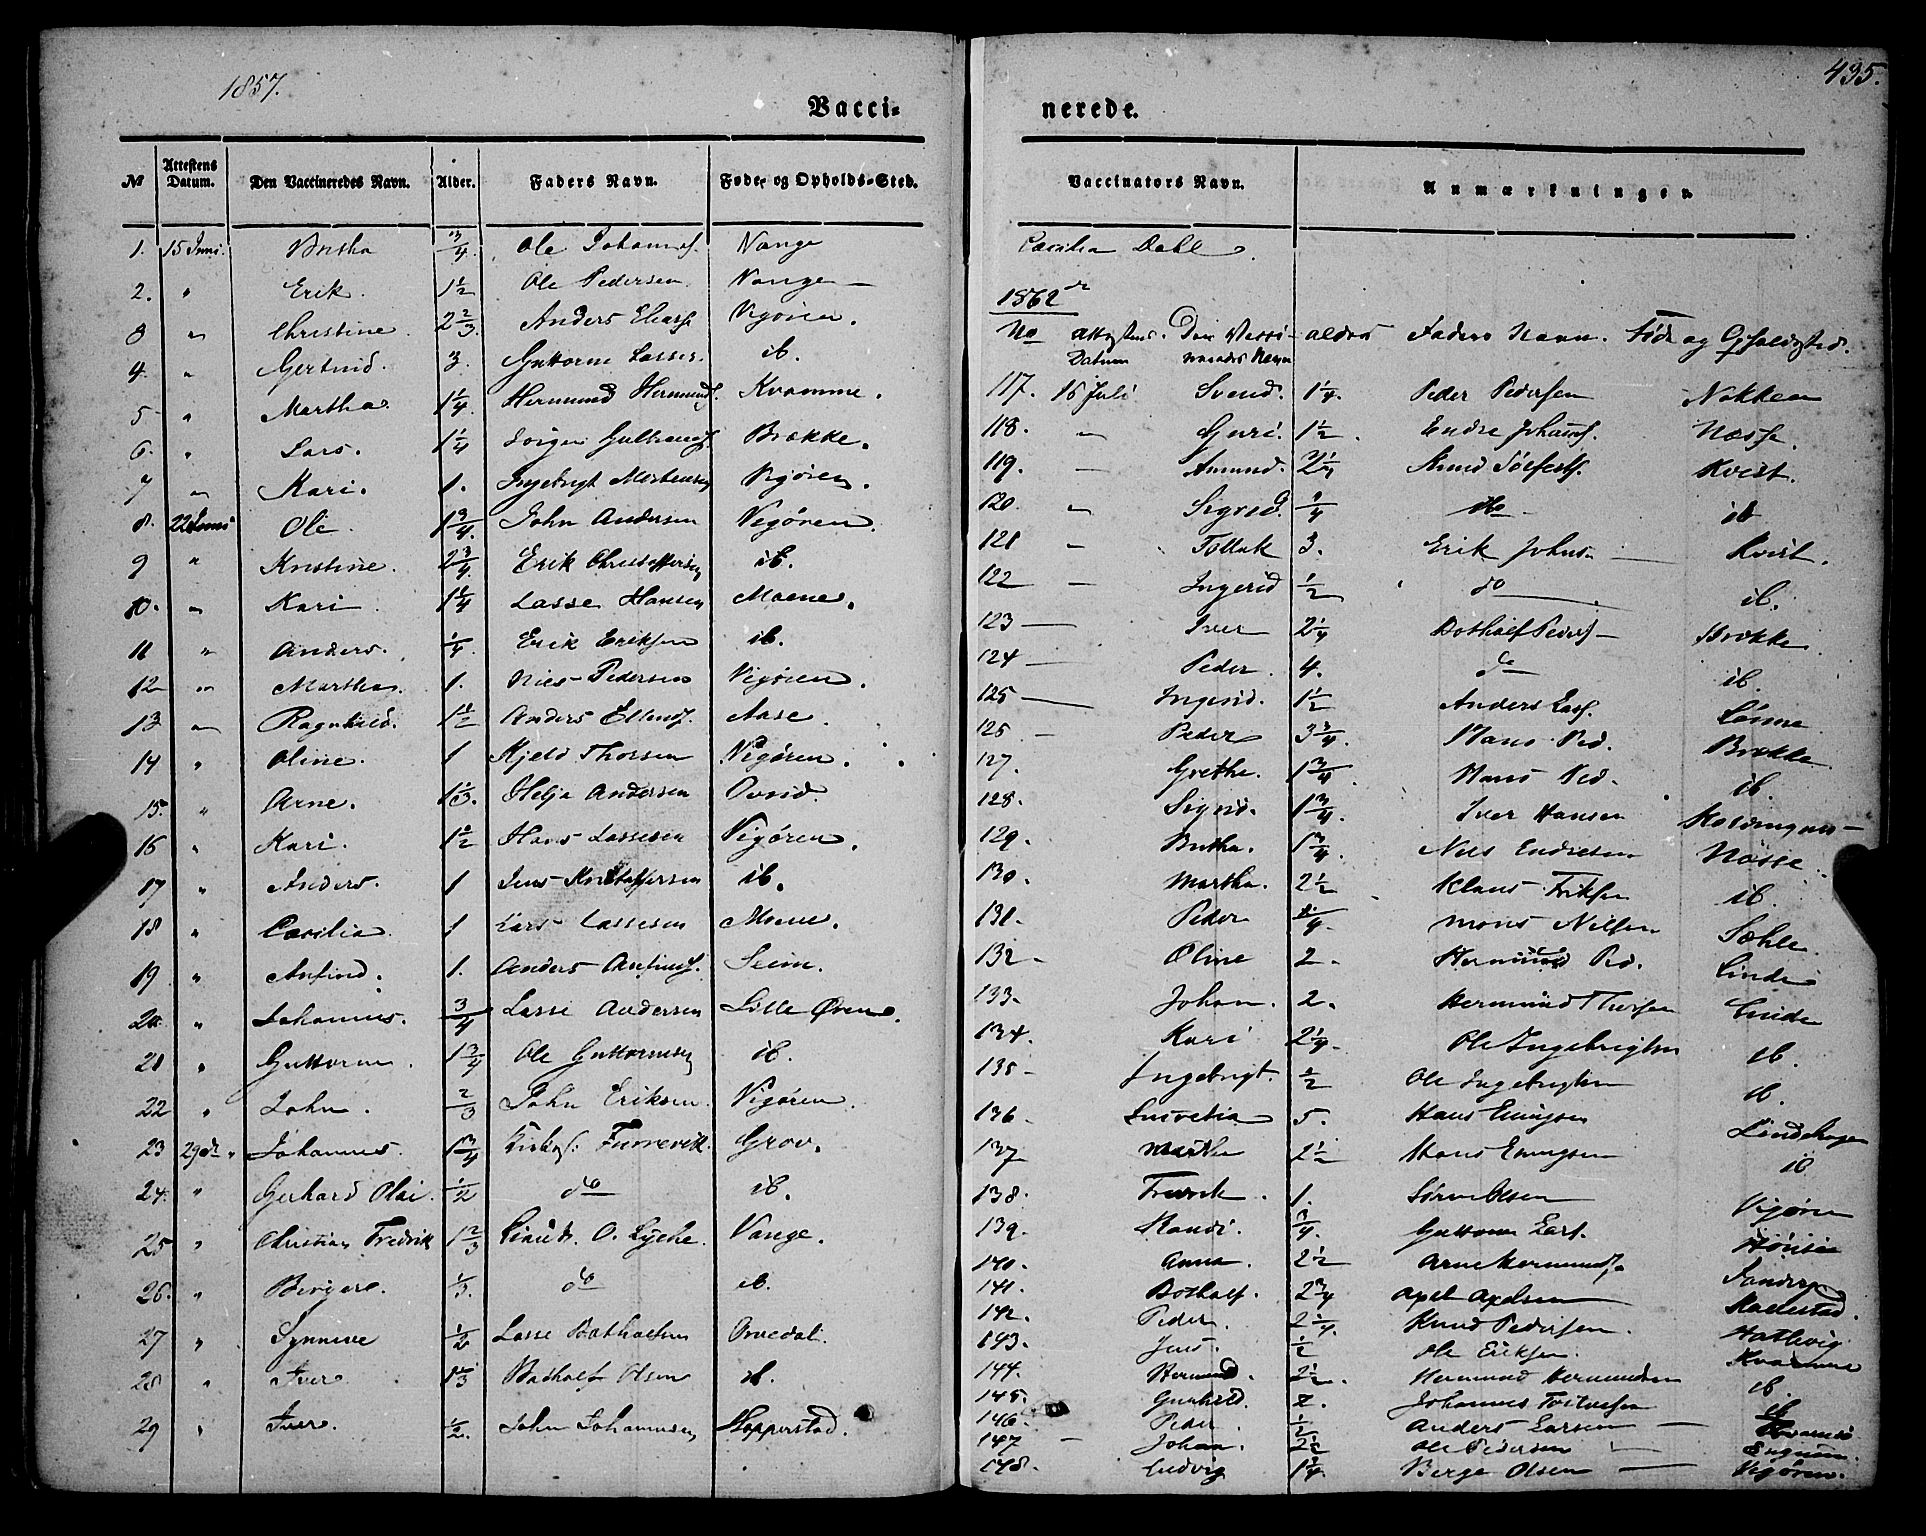 1857.
435.
Vacci-
nerede.
№ Attestens Datum. Den Vaccineredes Navn. Alder. Faders Navn. Føde- og Opholds-Sted.
1. 15 Juni. 3/4 Ole Johannes. Vange
2. " Erik. 1 1/2 Ole Pedersen. Vange —
3 " Christine. 2 2/3. Anders Vigøren.
4. " Gertrud. 3. Guttorm Lasses. ib.
5 " Martha. 1 1/4 Hermund Hermunds. Kvamme.
6. " Lars. 1 1/4 Brække.
7 " Kari. 1. Ingebrigt Mortensen Vigøren.
8. 22 Juni Ole 1 3/4. John Andersen Vigøren.
9 " Kristine. 2 3/4. Erik Christoffersen ib.
10. " Kari 1 1/4 Lasse Hansen Moene.
11 " Anders. 1/4 Erik Eriksen ib.
12 " Martha. 1. Nils Pedersen Vigøren.
13 " Ragnhild. 1 1/2 Anders Ellends. Aase.
14 " Oline. 1 Kjeld Thorsen Vigøren.
15. " Arne. 1 1/3. Helje Andersen Ovrid.
16 " Kari. 1 1/2 Hans Lassesen Vigøren.
17 " Anders. 1 Jens Kristoffersen ib.
18 " Cecilia. 1 Lars Lassesen Moene.
19 " Anfind. 1. Anders Anfinds. Seim.
20. " Johannes. 3/4 Lasse Andersen Lille Øren.
21 " Guttorm. 1 3/4 Ole Guttormsen ib.
22 " John. 2/3 John Eriksen. Vigøren.
23 29de " Johannes. 1 3/4 Furrevik. Grov.
24. " Gerhard Olai. 1/2 do ib.
25 " Christian Fredrik 1 2/3 O. Lyche. Vange.
26. " Birger. 1/3. do ib.
27 " Synneve 1/2 Lasse Bothholfsen Arnedal.
28 " Iver. 1 1/3 Botholf Olsen ib.
29 " Iver. 1/2. John Johannesen Hopperstad.
Vaccinators Navn. Anmærkninger.
Cecilia Dahl.
1862
No Attestens Datum Den Vacci-neredes Navn alder Faders Navn. Føde og Opholdssted.
117. 16 Juli Svend. 1 1/4. Peder Pedersen Nokken
118. " Guri. 1 1/2. Endre Johanns. Næsse.
119. — Amund. 2 1/4 Knud Kvist.
120 " Sigrid. 1/4 do ib
121 " Tollak 3. Erik Johns. — Kvist.
122 — Ingerid 1/2 do ib.
123 — Iver 2 1/4 Botholf Peders — Brække
124 — Peder. 4. do ib.
125 — Ingerid. 1 1/2 Anders Lass. Lønne
125 — Peder 3 3/4. Hans Ped. Brække
127. Grethe. 1 3/4 Hans Ped. ib.
128. Sigrid. 1 3/4. Iver Hansen
129. Britha. 1 3/4. Nils Endresen Næsse
130. Martha. 2 1/2 Klaus Eriksen ib.
131. Peder Mons Nilsen Sæhle
132 — Oline 2. Hermund Ped. Linde
133. Johan. 2. Hermund Linde
134. Kari 2 1/4. Ole Ingebrigtsen ib.
135 — Ingebrigt. 1/2 Ole Ingebrigtsen ib.
136. Lucretia 5. Hans Lindehagen
137 Marthe 2 1/2 Hans ib
138. Fredrik. 1. Søren Olsen Vigøren
139. Randi. 3/4. Guttorm Lars.
140. Anna. 2 1/2 Arne Hermunds.
141. Botholf. 2 3/4 Axel Axelsen
142. Peder. 2 1/4. Knud Pedersen.
143. Jens. 1/2 Ole Eriksen. Hatlevig
144. Hermund. 2 1/2. Hermund Hermundsen Kvamme
145. Gunhild. 2. Johannes ib.
146. Peder 1/2 Anders Larsen — ib
147 — Johan. 2 1/2 Ole Pedersen —
148. Ludvig 1 1/4. Berge Olsen — Vigøren.